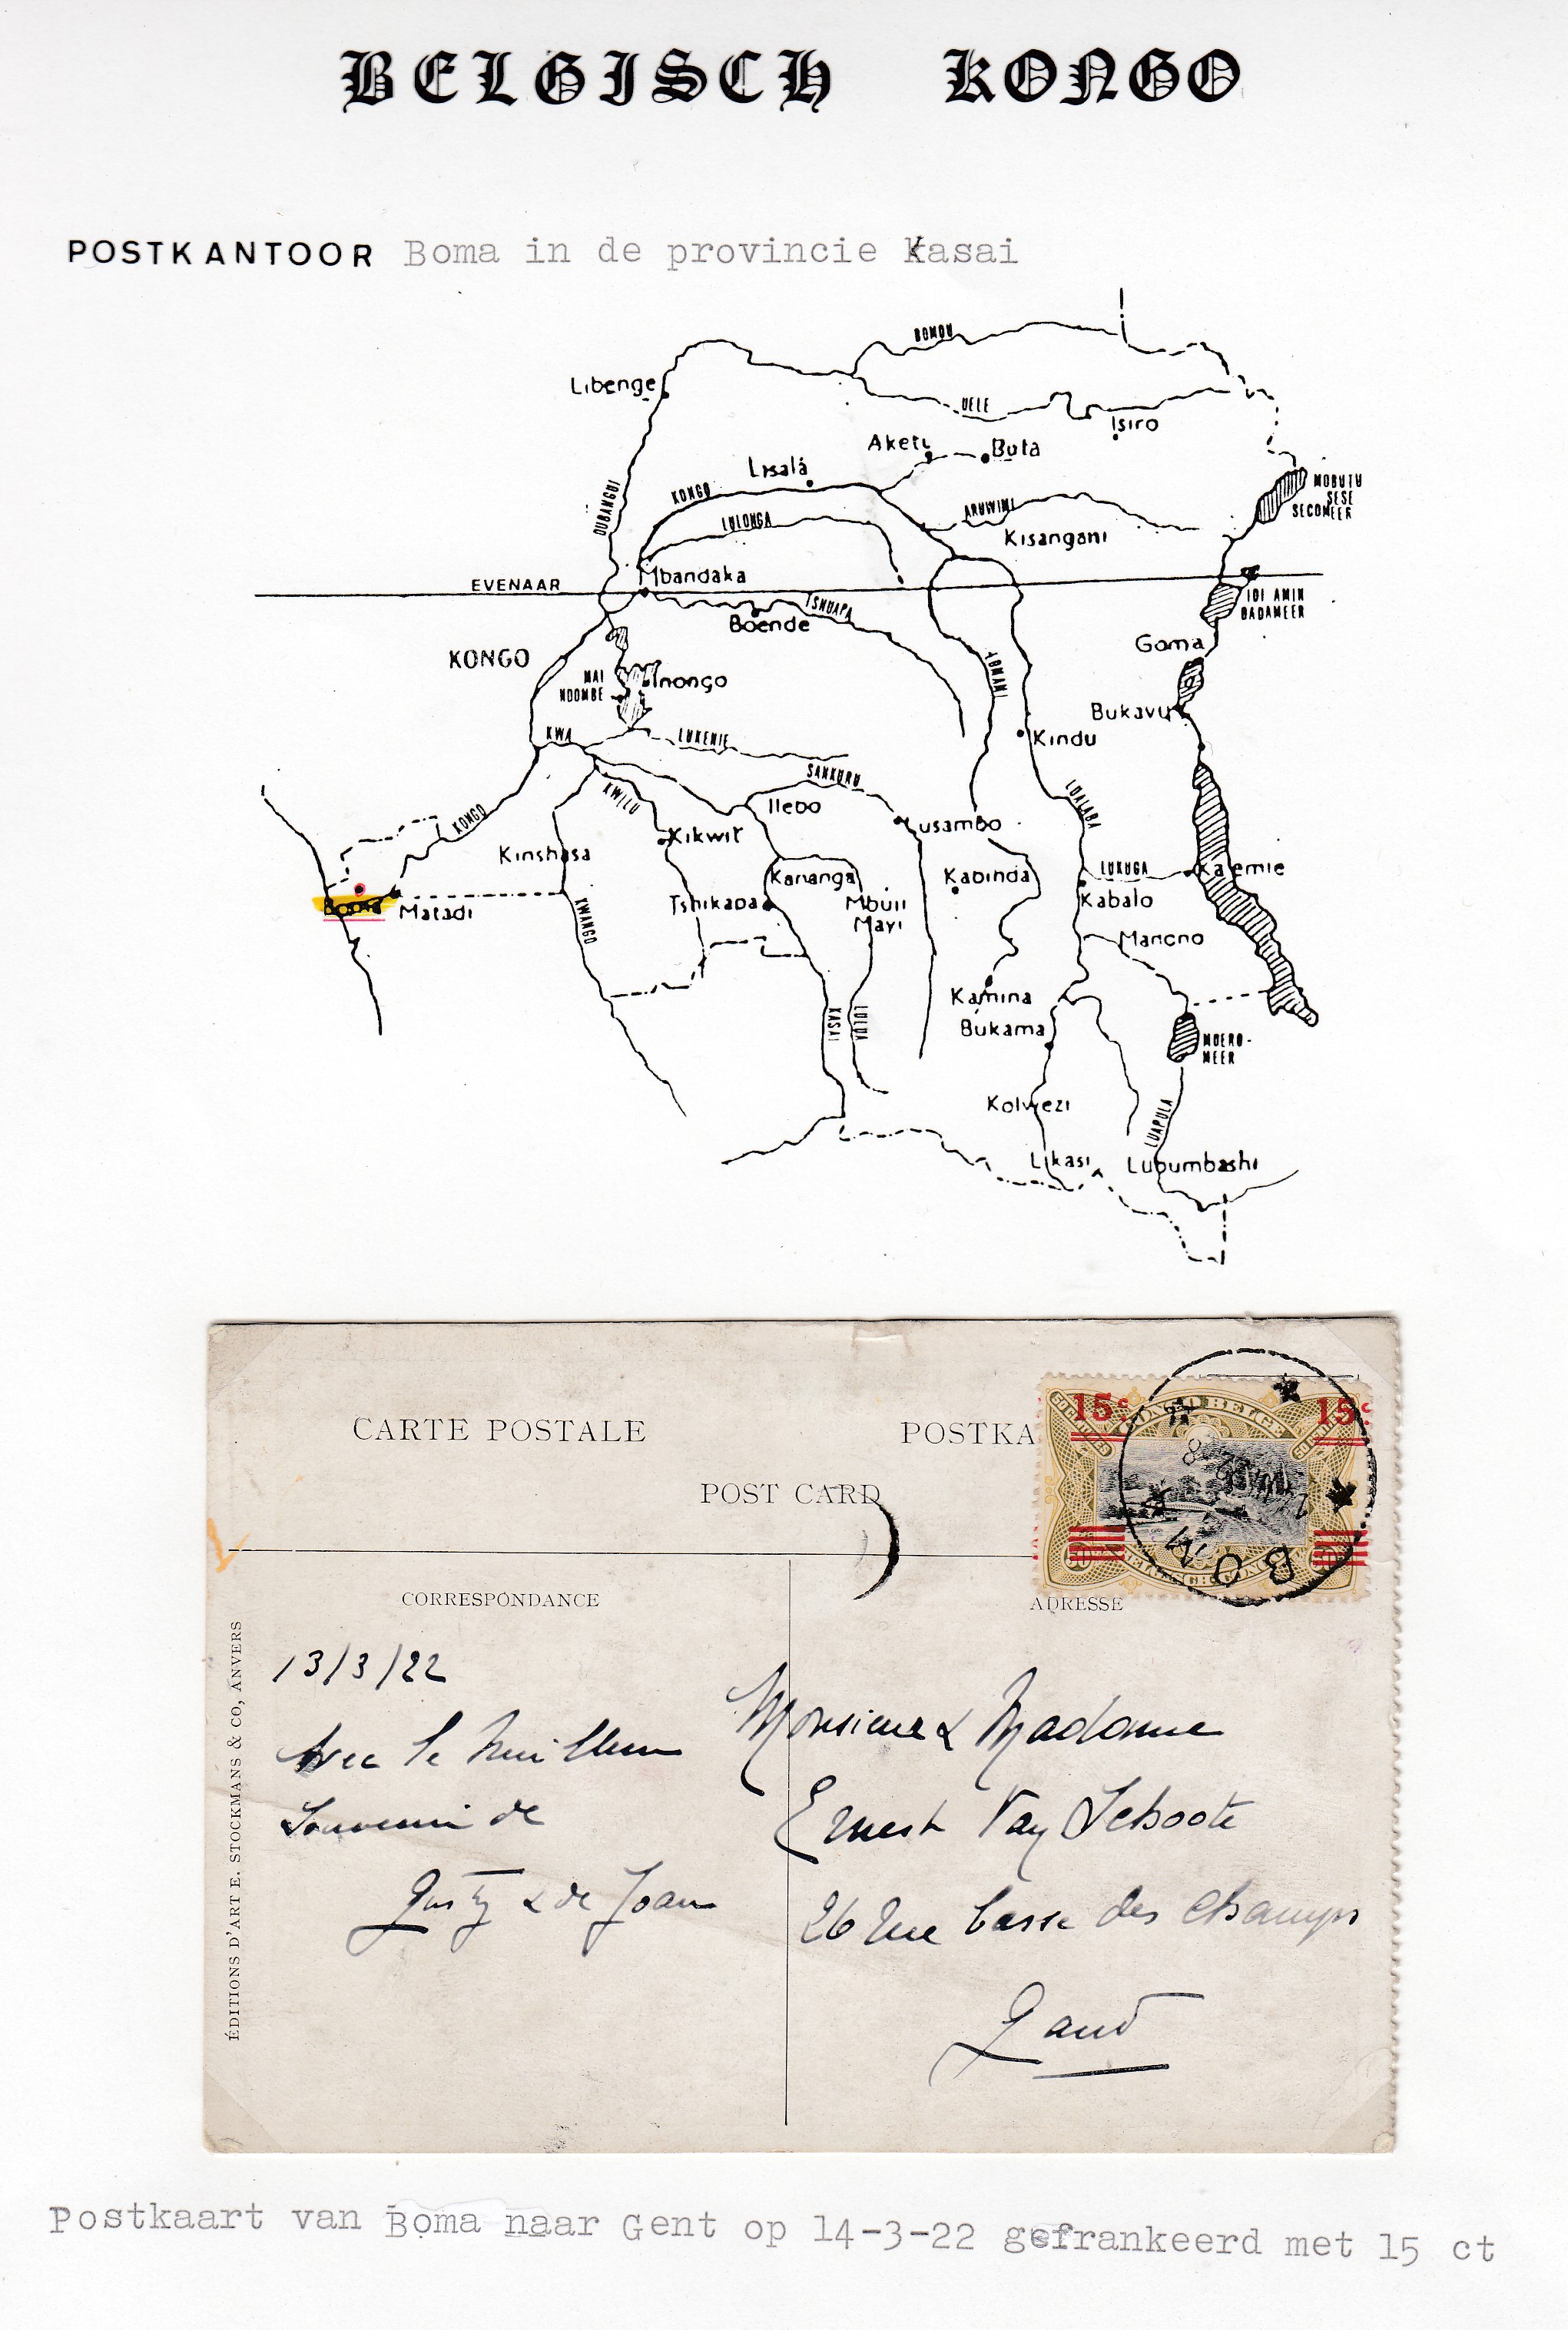 BELGISCH KONGO
POSTKANTOOR Boma in de provincie Kasai
BOMOU
Libenge
UELE
Isiro
Aketi
Buta
Lisala
MOBUTU
SESE
SECOMEER
OUBANGUI
KONGO
LULONGA
ARUWIMI
Kisangani
Mbandaka
EVENAAR
IDI AMIN
DADAMEER
TSHUAPA
Boende
Goma
KONGO
MAI
NDOMBE
Inongo
LOMAMI
Bukavu
KWA
LUKENIE
Kindu
SANKURU
KWILU
Ilebo
LUALABA
KONGO
Lusambo
Kikwit
Kinshasa
Kananga
Kabinda
LUKUGA
Kalemie
Boma
Matadi
Tshikapa
Mbuji
Mayi
Kabalo
KWANGO
Manono
Kamina
KASAI
LULUA
Bukama
MOERO-
MEER
Kolwezi
LUAPULA
Likasi
Lubumbashi
CARTE POSTALE
POSTKA
POST CARD
15c 15c
CONGO BELGE
50 50
BOM
CORRESPONDANCE
ADRESSE
ÉDITIONS D'ART E. STOCKMANS & CO, ANVERS
13/3/22
Avec le meilleur
Souvenir de
Gusty & de Joan
Monsieur & Madame
Ernest Van Schoote
26 Rue basse des champs
Gand
Postkaart van Boma naar Gent op 14-3-22 gefrankeerd met 15 ct